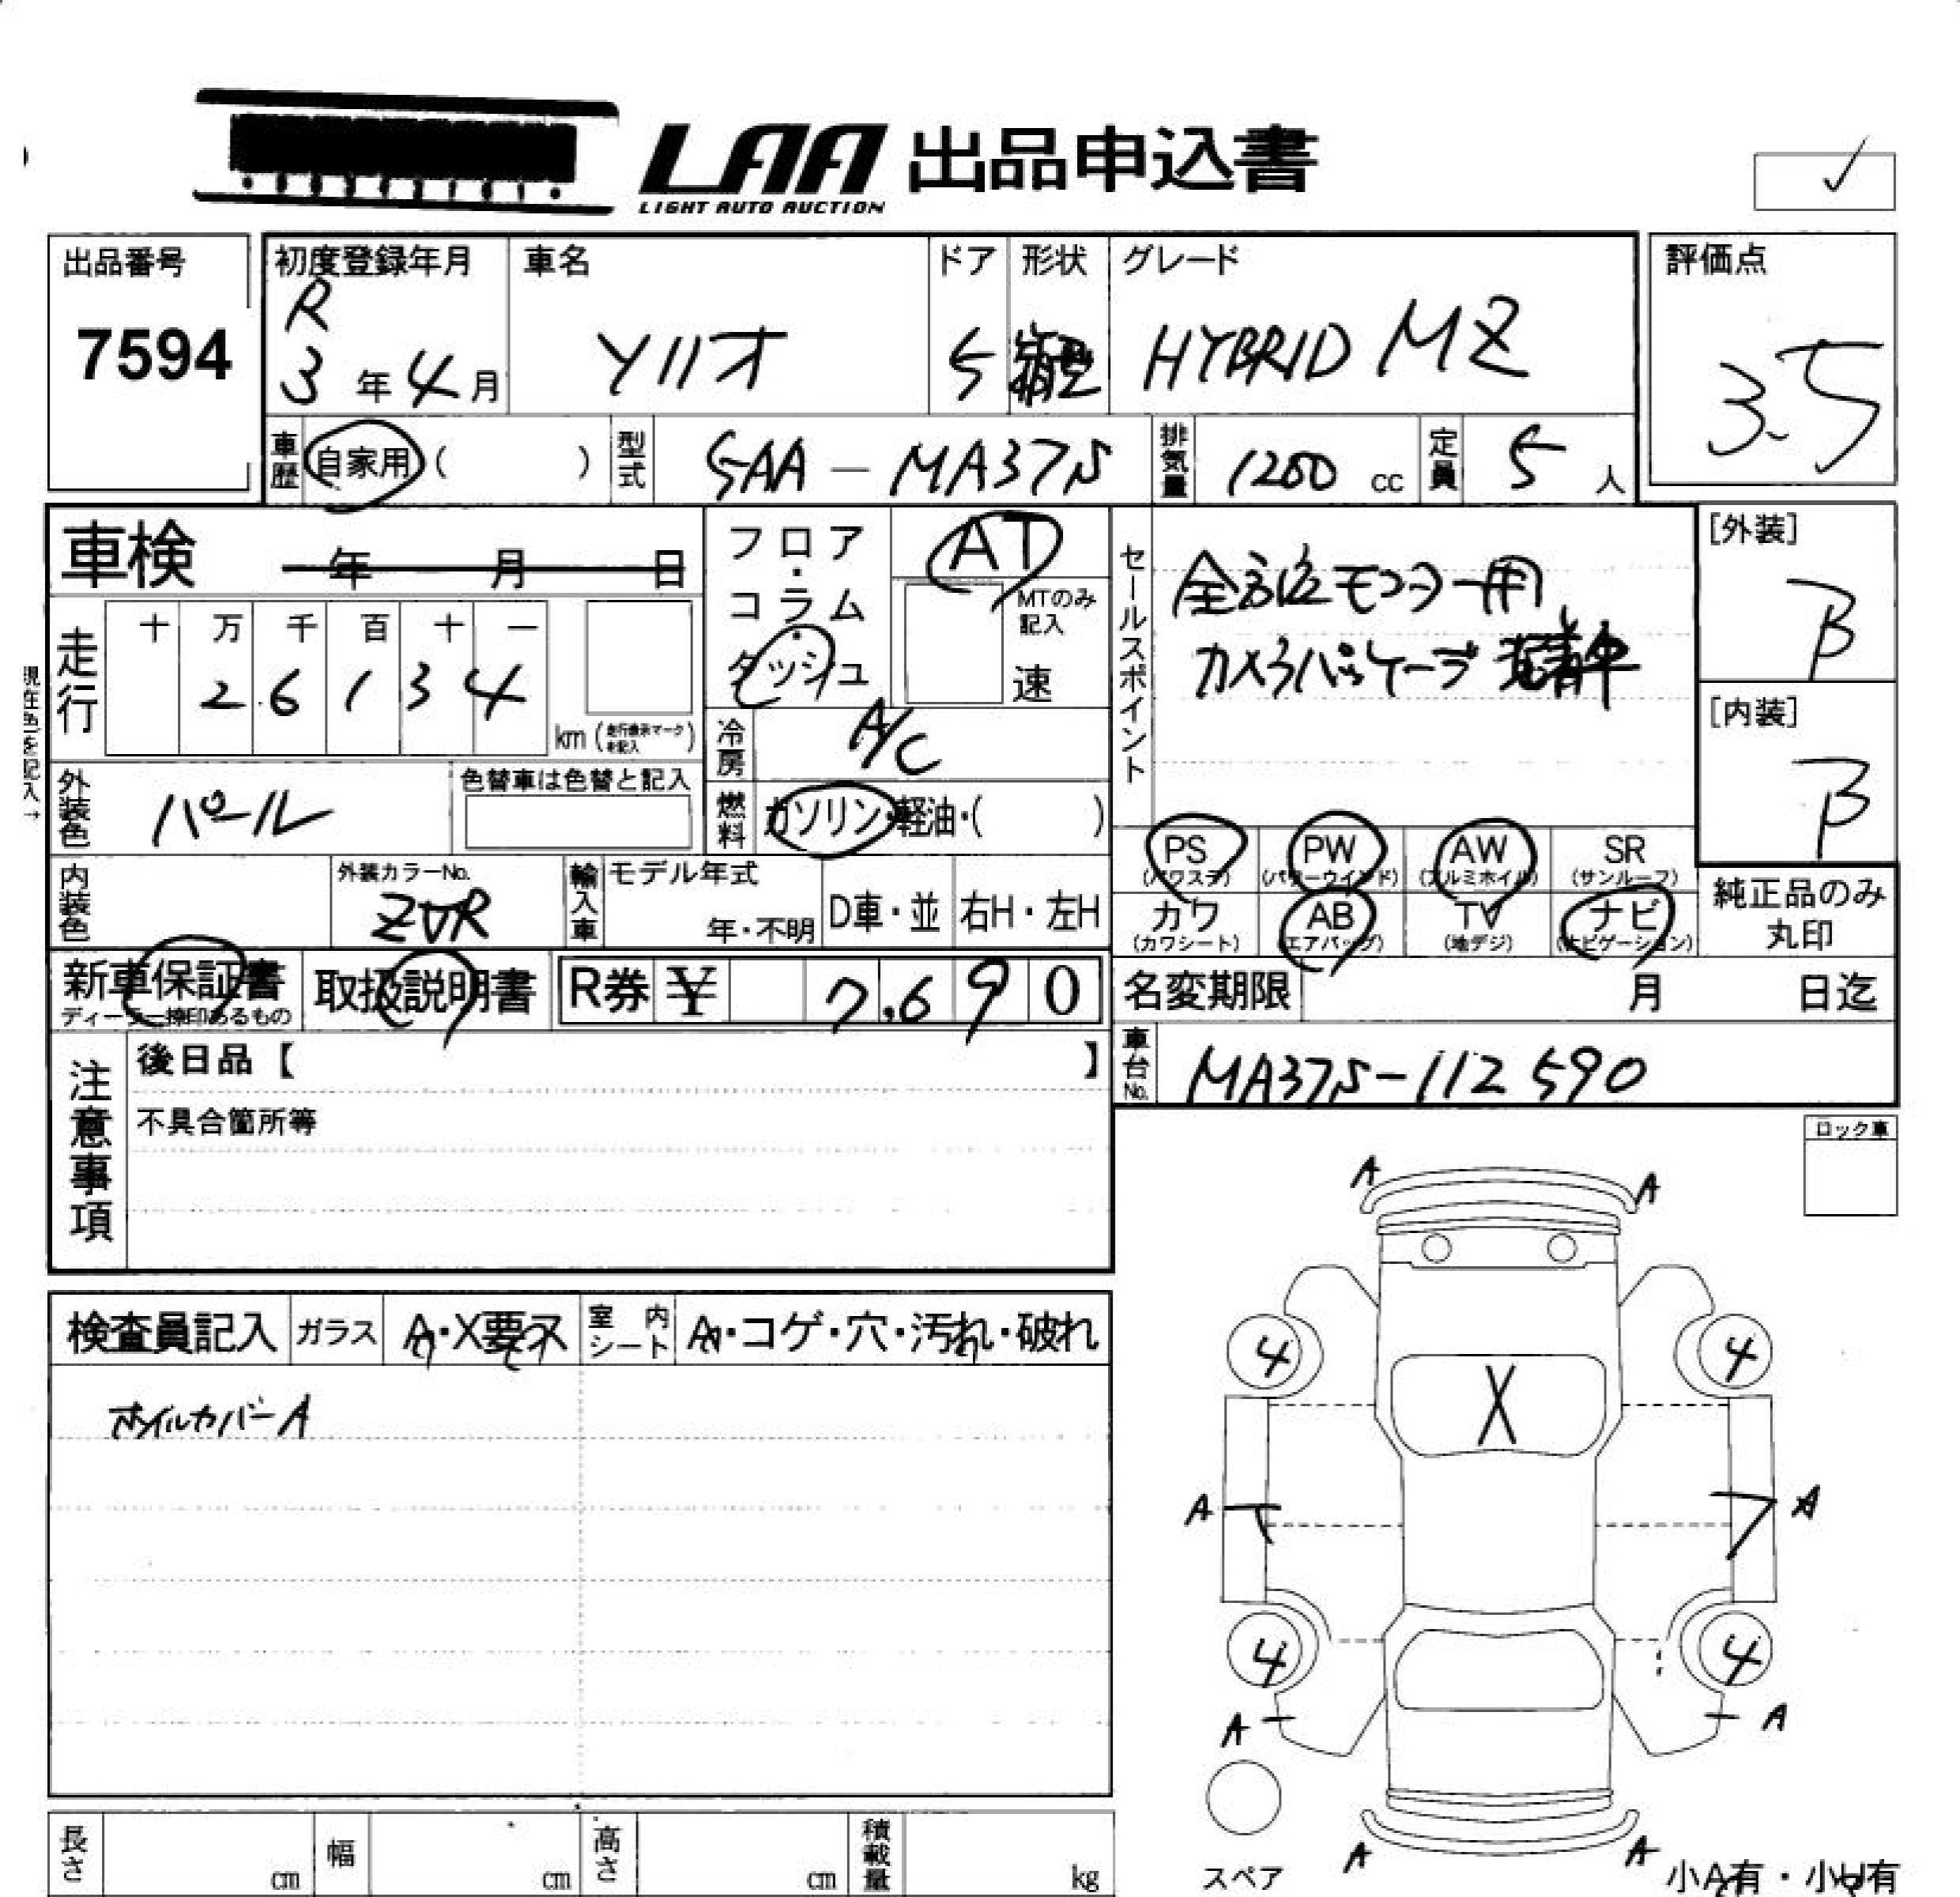 LAA 出品申込書
LIGHT AUTO AUCTION
出品番号
7594
初度登録年月
R
3年4月
車名
ソリオ
ドア
5
形状
箱型
グレード
HYBRID MZ
評価点
3.5
車歴
自家用 ( )
型式
5AA-MA37S
排気量
1200 cc
定員
5 人
車検 年 月 日
フロア・コラム・ダッシュ
AT
MTのみ記入
速
セールスポイント
全方位モニター用
カメラパッケージ装着車
[外装]
B
[内装]
B
現在色を記入→
走行
十 万 千 百 十 一
2 6 1 3 4
km (走行表示マークを記入)
冷房
A/C
燃料
ガソリン・軽油・( )
外装色
パール
色替車は色替と記入
PS
(パワステ)
PW
(パワーウインド)
AW
(アルミホイル)
SR
(サンルーフ)
カワ
(カワシート)
AB
(エアバッグ)
TV
(地デジ)
ナビ
(ナビゲーション)
純正品のみ
丸印
内装色
外装カラーNo.
ZVR
輸入車
モデル年式
年・不明
D車・並
右H・左H
新車保証書
ディーラー捺印あるもの
取扱説明書
R券 ¥ 7,690
名変期限 月 日迄
車台No.
MA37S-112590
注意事項
後日品【 】
不具合箇所等
ロック車
検査員記入
ガラス
A・X要ヌ
室内シート
A・コゲ・穴・汚れ・破れ
ホイルカバーA
A
A
4
4
X
A
A
4
4
A
A
A
A
スペア
小A有・小U有
長さ cm
幅 cm
高さ cm
積載量 kg